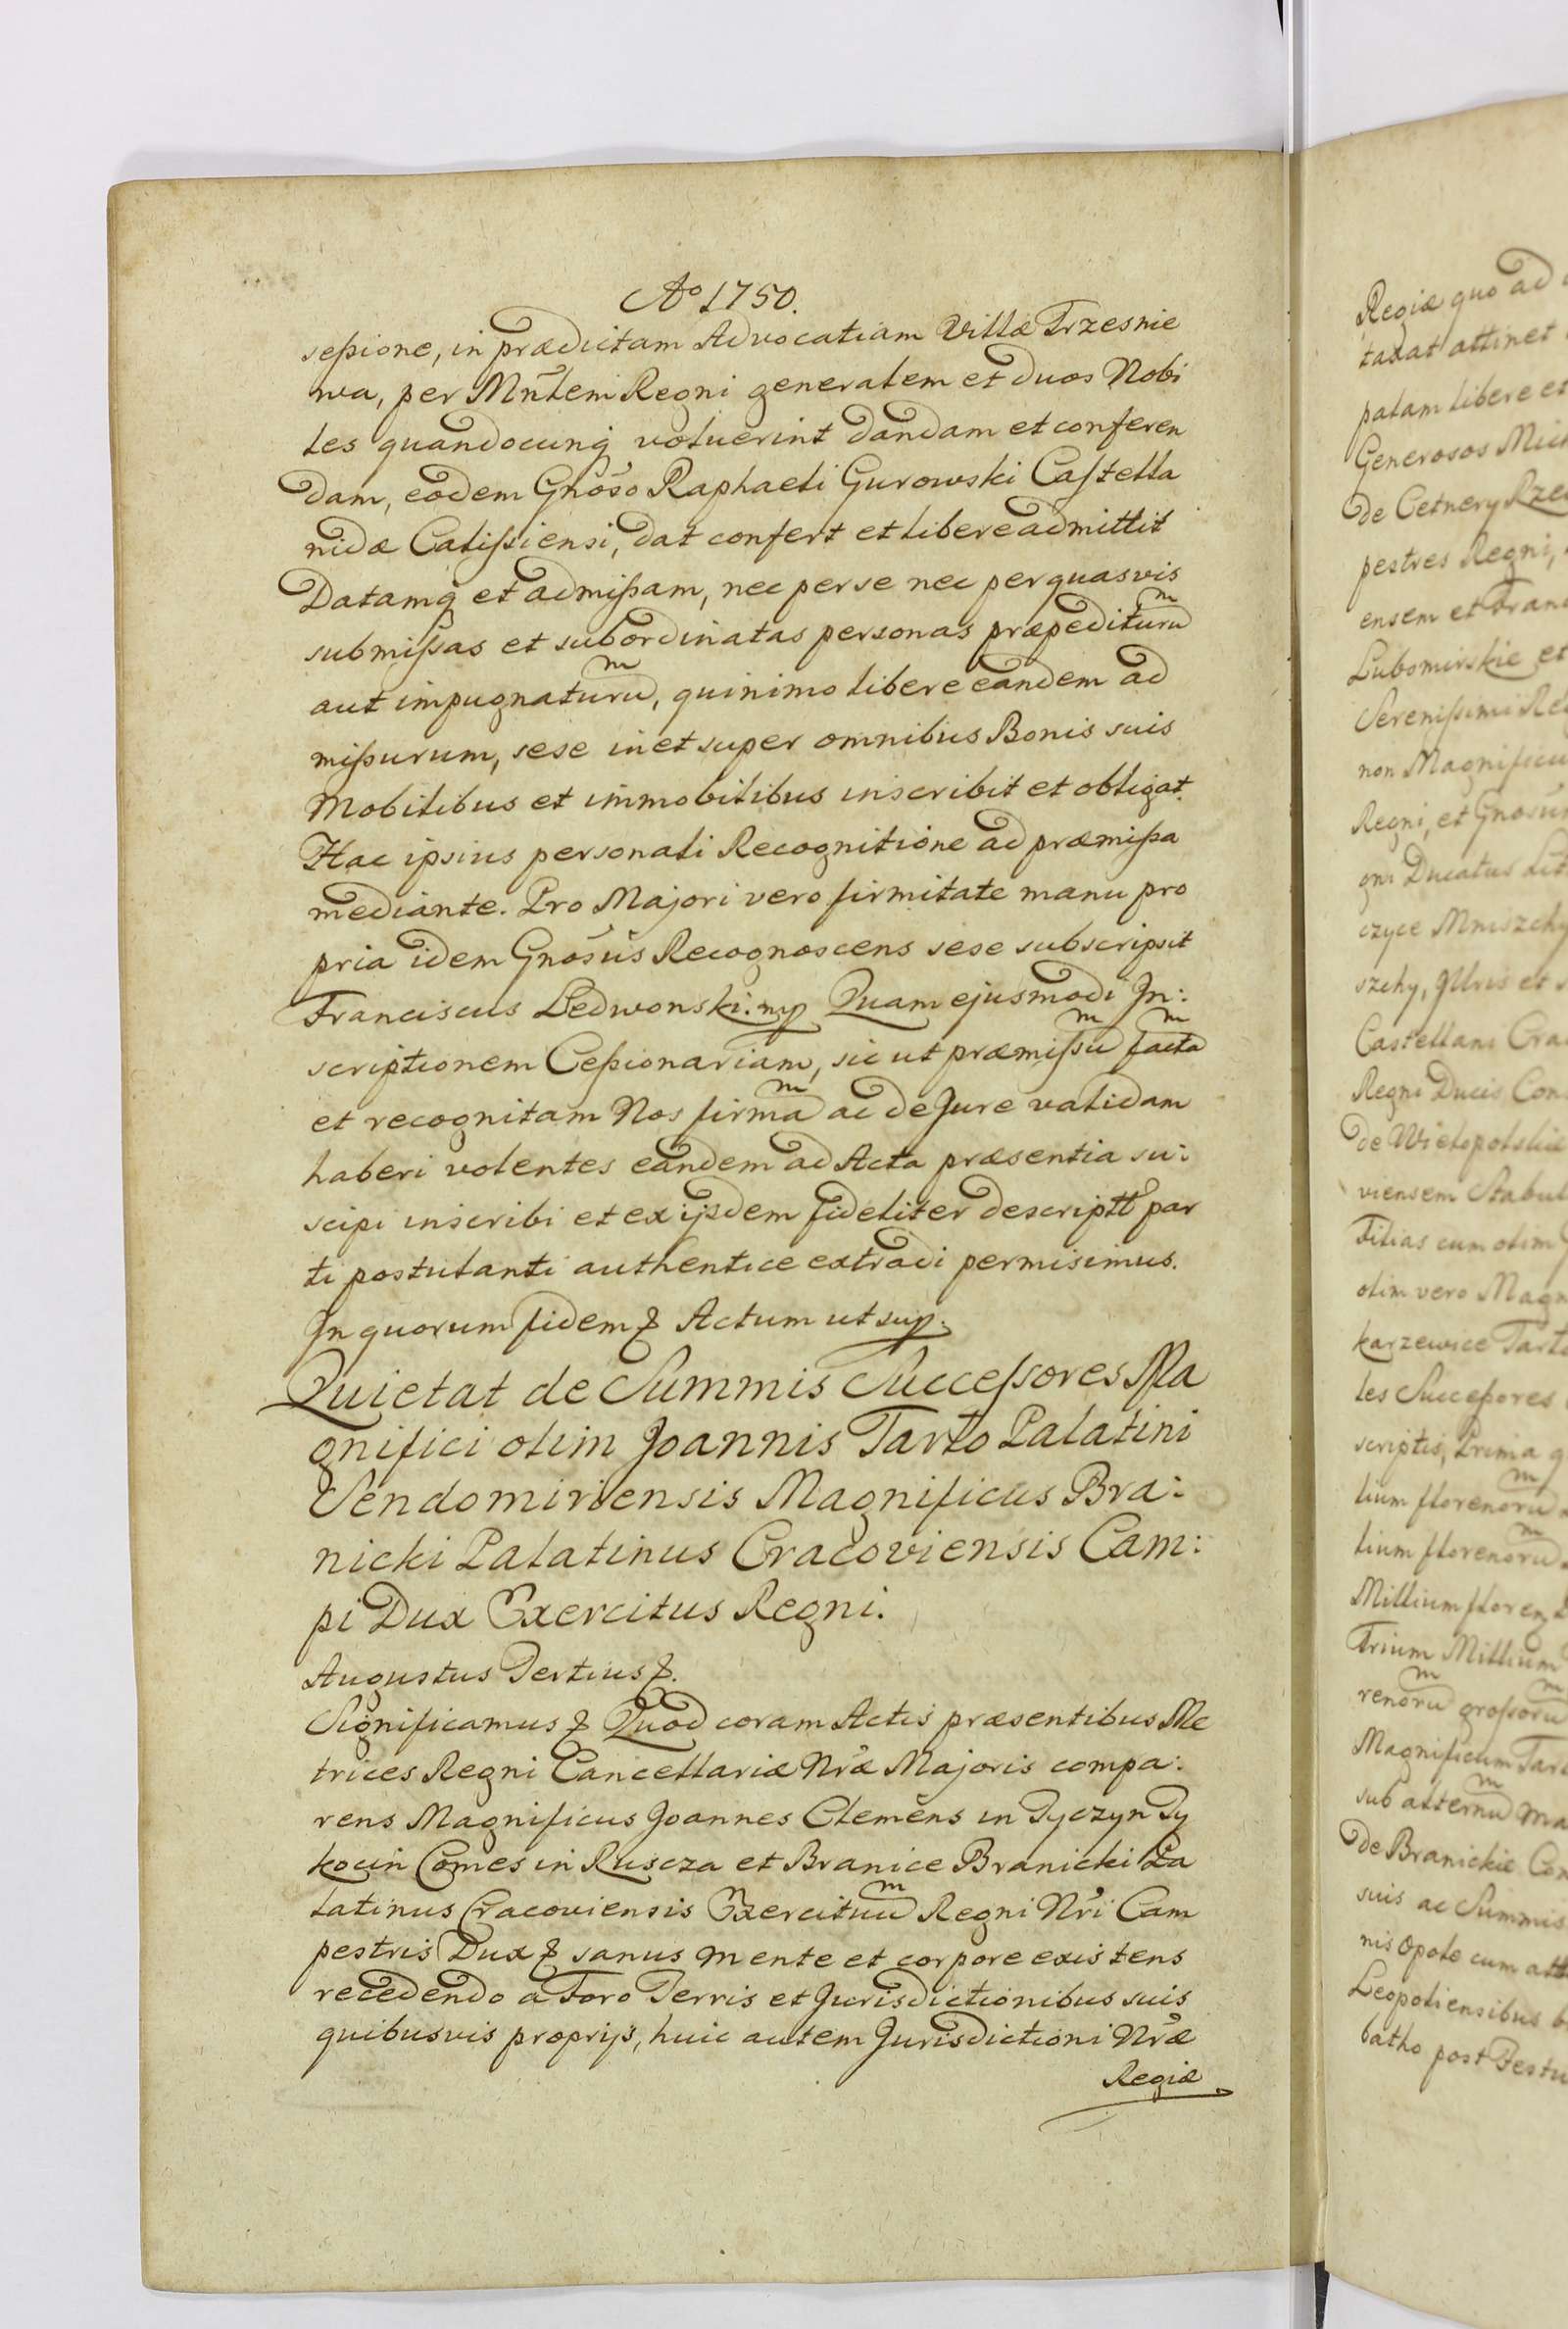 Aº 1750.
seßione, in prædictam Advocatiam Villæ Trzesnie
wa, per Mnlem Regni generalem et duos Nobi
les quandocunq voluerint dandam et conferen
dam, eodem Gnõso Raphaeli Gurowski Castella
nidæ Calissiensi, dat confert et libere admittit
Datamq et admißam, nec per se nec per quasvis
submissas et subordinatas personas præpediturum
aut impugnaturum, quinimo libere eandem ad
mißurum, sese in et super omnibus Bonis suis
Mobilibus et immobilibus inscribit et obligat.
Hac ipsius personali Recognitione ad præmißa
mediante. Pro Majori vero firmitate manu pro
pria idem Gnõsus Recognoscens sese subscripsit
Franciscus Ledwonski. mp Quam ejusmodi In:
scriptionem Ceßionariam, sic ut præmissum factam
et recognitam Nos firmam ac de Jure validam
haberi volentes eandem ad Acta præsentia su:
scipi inscribi et ex ijsdem fideliter descriptt par
ti postulanti authentice extradi permisimus.
In quorum fidem & Actum ut sup.
Quietat de Summis Successores Ma
gnifici olim Joannis Tarło Palatini
Sendomiriensis Magnificus Bra:
nicki Palatinus Cracoviensis Cam:
pi Dux Exercitus Regni.
Augustus Tertius &.
Significamus & Quod coram Actis præsentibus Me
trices Regni Cancellariæ Nræ Majoris compa:
rens Magnificus Joannes Clemens in Tyczyn Ty
kocin Comes in Ruscza et Branice Branicki Pa
latinus Cracoviensis Exercituum Regni Nri Cam
pestris Dux & sanus mente et corpore existens
recedendo a Foro Terris et Jurisdictionibus suis
quibusvis proprijs, huic autem Jurisdictioni Nræ
Regiæ
Regiæ quo ad
taxat attinet
palam libere et
Generosos
de Cetnery
pestres Regni,
ensem et
Lubomirskie et
Serenissimi
non
Regni, et
gni Ducatus
czyce Mniszchy
szchy, Illris et
Castellani
Regni Ducis
de Wielopolskie
viensem
Filias cum olim
olim vero
karzewice
les Succeßores
scriptis, Prima
lium florenorum
lium florenorum
Millium floren
Trium Millium
renorum grossorum
Magnificum
sub alternum
de Branickie
suis ac Summis
nis Opole cum
Leopoliensibus
batho post